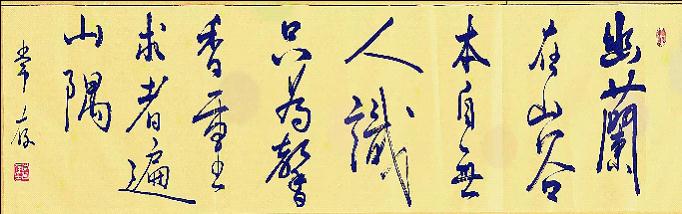 幽蘭
在山谷
本自無
人識
只為馨
香重
求者遍
山隅
常